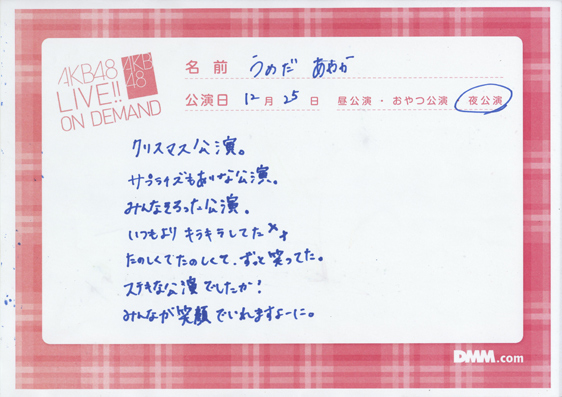 AKB48
LIVE!!
ON DEMAND
AKB
48
名前 うめだ あやか
公演日 12月 25日 昼公演・おやつ公演 夜公演
クリスマス公演。
サプライズもありな公演。
みんなそろった公演。
いつもよりキラキラしてた
たのしくてたのしくて、ずっと笑ってた。
ステキな公演でしたか!
みんなが笑顔でいれますよーに。
DMM.com